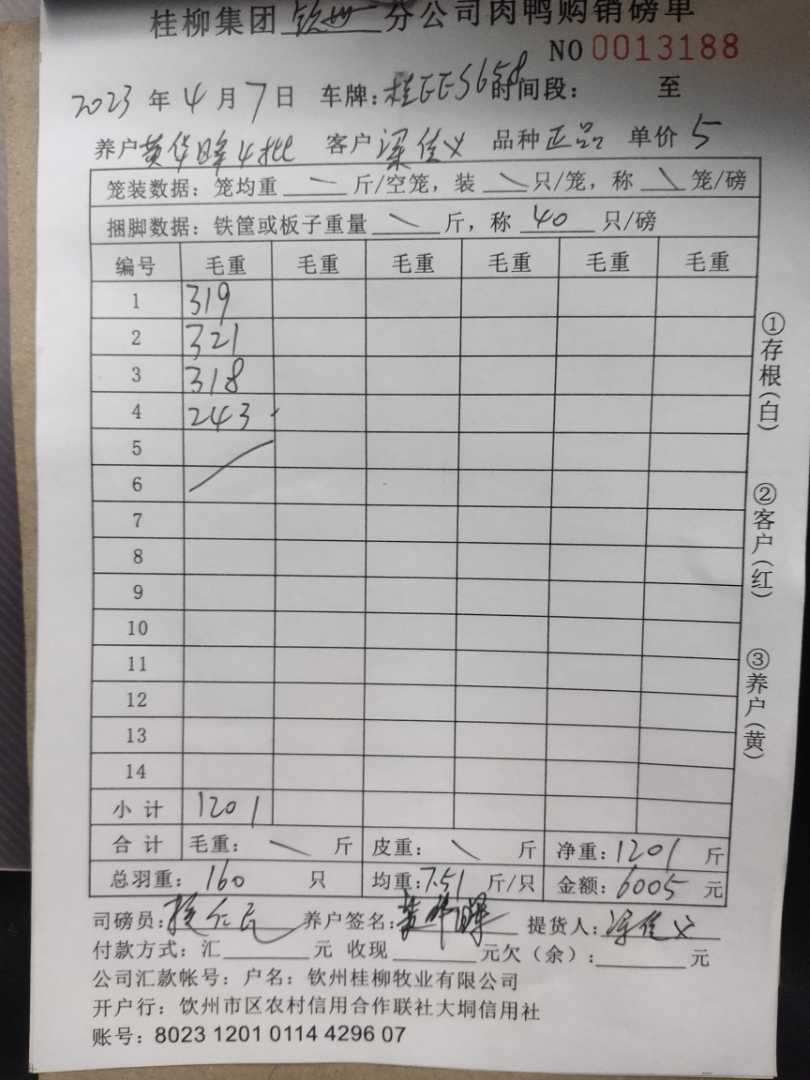 桂柳集团钦州分公司肉鸭购销磅单
NO 0013188
2023 年 4 月 7 日 车牌：桂EES658 时间段： 至
养户 黄华晖4批 客户 梁佳义 品种 正品 单价 5
笼装数据：笼均重 — 斤/空笼，装 \ 只/笼，称 \ 笼/磅
捆脚数据：铁筐或板子重量 \ 斤，称 40 只/磅
编号 毛重 毛重 毛重 毛重 毛重 毛重
1 319
2 321
3 318
4 243
5
6
7
8
9
10
11
12
13
14
小 计 1201
合 计 毛重： \ 斤 皮重： \ 斤 净重：1201 斤
总羽重： 160 只 均重：7.51 斤/只 金额：6005 元
司磅员： 养户签名：黄华晖 提货人：梁佳义
付款方式：汇 元 收现 元欠（余）： 元
公司汇款帐号：户名：钦州桂柳牧业有限公司
开户行：钦州市区农村信用合作联社大垌信用社
账号：8023 1201 0114 4296 07
①存根（白）
②客户（红）
③养户（黄）